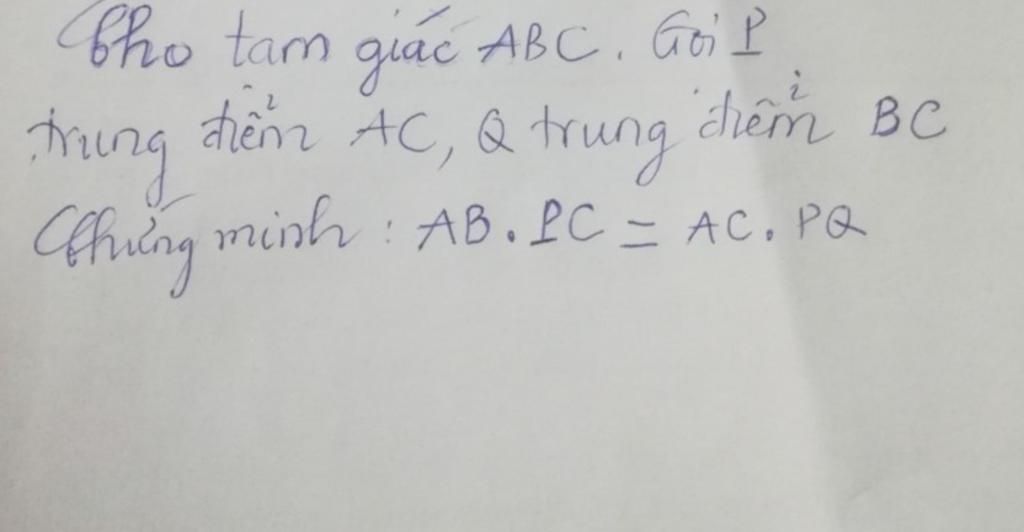 Cho tam giác ABC. Gọi P
trung điểm AC, Q trung điểm BC
Chứng minh: AB. PC = AC. PQ